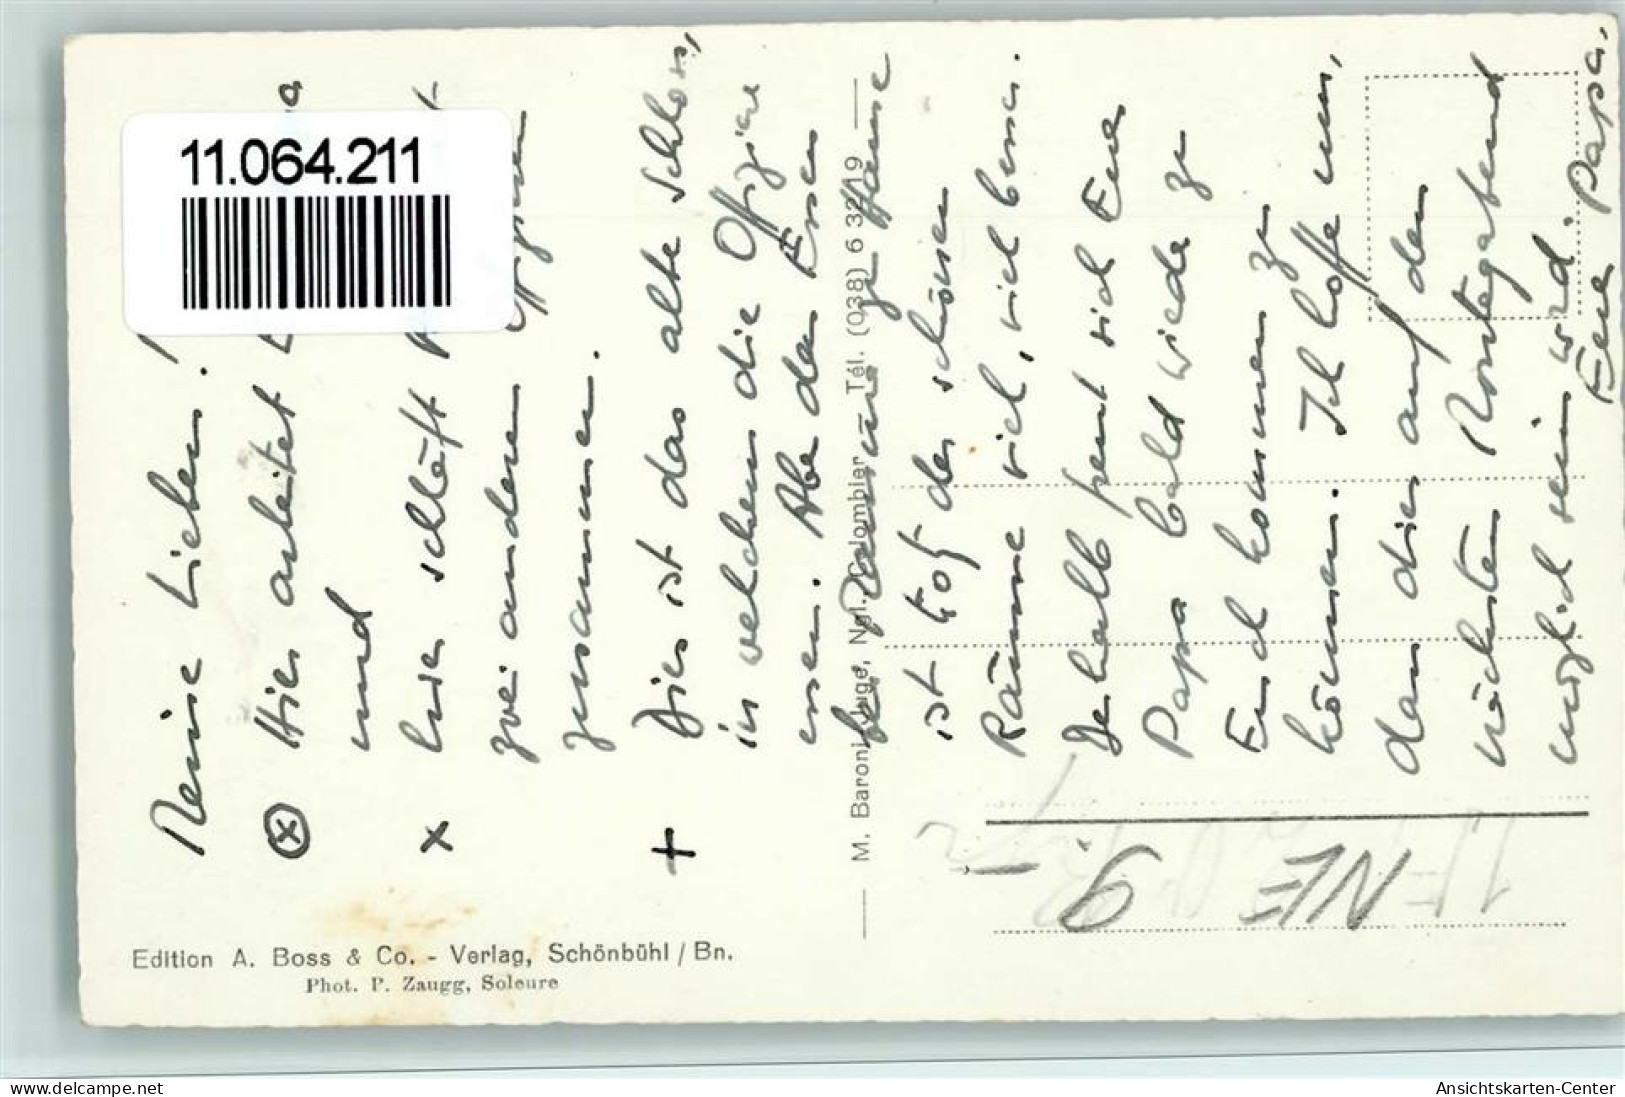 11.064.211
Meine Lieben!
⊗ Hier arbeitet
und
x hier schläft
zwei anderen Offizieren
zusammen.
+ Dies ist das alte Schloss,
in welchem die Offiziere
essen. Aber das Essen
ist trotz der schönen
Räume viel, viel besser.
Deshalb freut sich Euer
Papa bald wieder zu
Euch kommen zu
können. Ich hoffe nun,
dass dies auf den
nächsten Montagabend
möglich sein wird.
Euer Papa.
M. Baroni-Juge, Ngt. Colombier Tél. (038) 6 32 19
NE
9.-
Edition A. Boss & Co. - Verlag, Schönbühl / Bn.
Phot. P. Zaugg, Soleure
delcampe.net
Ansichtskarten-Center